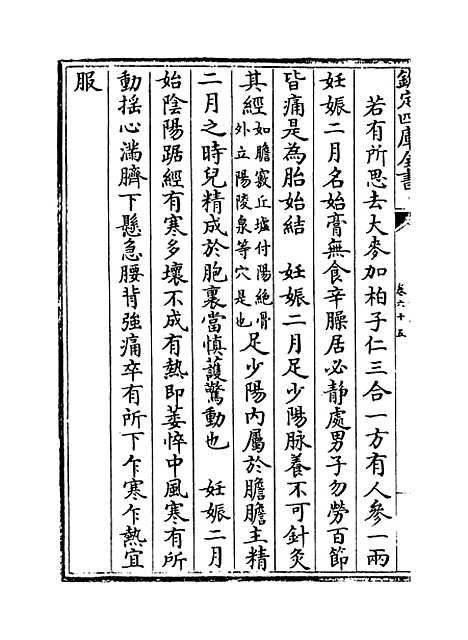 欽定四庫全書
卷六十五
若有所思去大麥加柏子仁三合一方有人參一兩
妊娠二月名始膏無食辛臊居必靜處男子勿勞百節
皆痛是為胎始結　妊娠二月足少陽脉養不可針灸
其經如膽竅丘墟付陽絶骨外立陽陵泉等穴是也足少陽内屬於膽膽主精
二月之時兒精成於胞裏當慎護驚動也　妊娠二月
始陰陽踞經有寒多壞不成有熱即萎悴中風寒有所
動揺心滿臍下懸急腰背強痛卒有所下乍寒乍熱宜
服